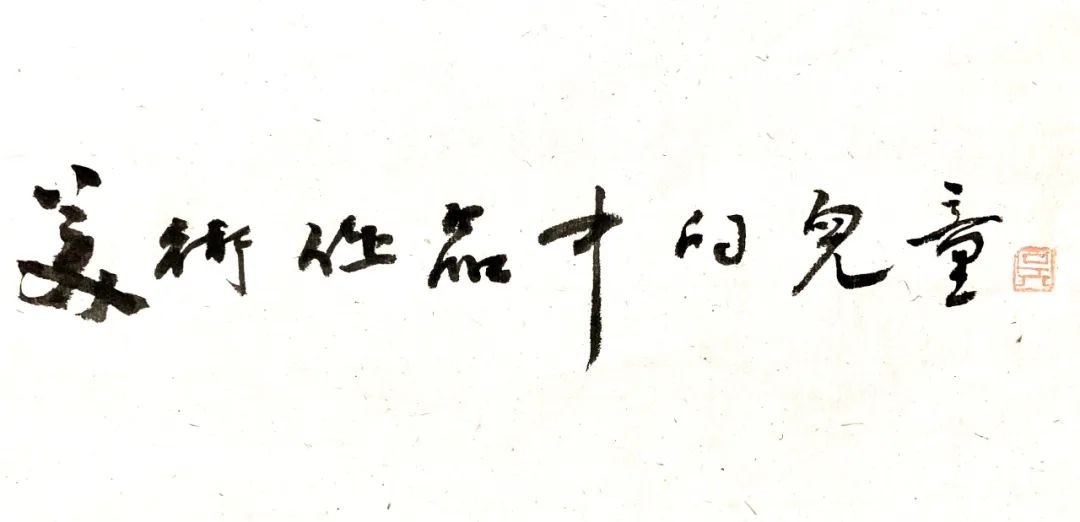 美術作品中的兒童